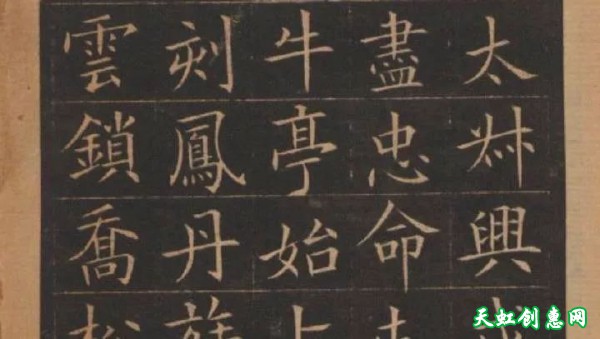 太興
盡忠命
牛亭始上
刻鳳丹旌
雲鎖喬松
天虹创惠网